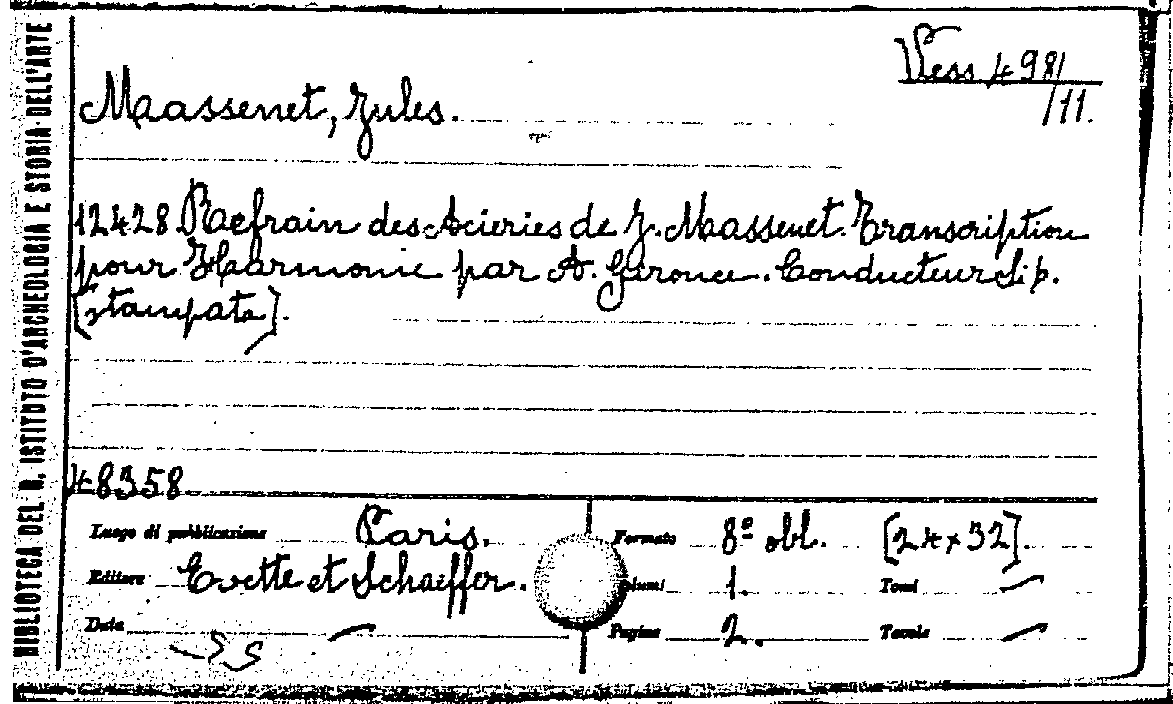 BIBLIOTECA DEL R. ISTITUTO D'ARCHEOLOGIA E STORIA DELL'ARTE
Vess 4981
/11.
Maassenet, Jules.
12428 Refrain des Acieries de J. Massenet. Transcription
pour Harmonie par A. Gironce. Conducteur Si b.
[stampata].
48358
Luogo di pubblicazione Paris. Formato 8º obl. [24x32].
Editore Evette et Schaeffer. Volumi 1. Tomi —
Data — Pagine 2. Tavole —